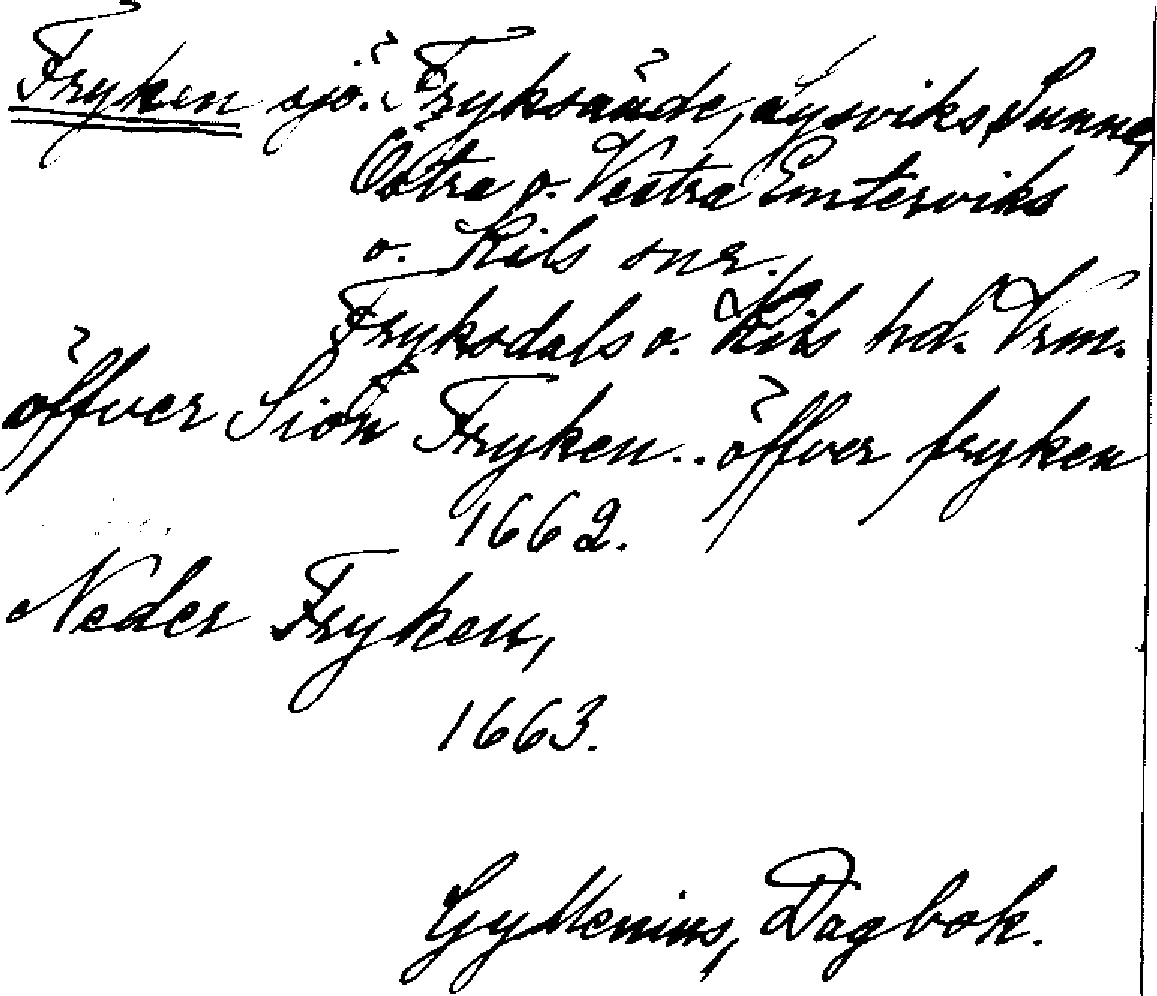 Fryken sjö. Fryksände, Lysviks, Sunne,
Östra o. Vestra Emterviks
o. Kils snr.
Fryksdals o. Kils hd. Vrm.
öffver Siön Fryken.. öffver fryken
1662.
Neder Fryken,
1663.
Gyllenius, Dagbok.